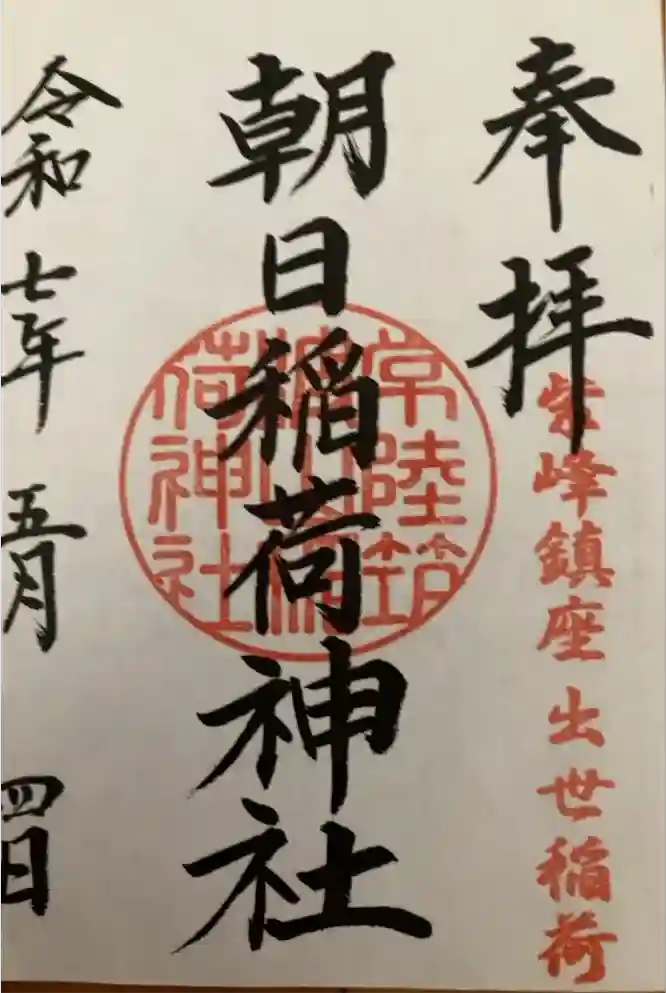 奉拝
紫峰鎮座出世稲荷
朝日稲荷神社
常陸筑
荷神社
令和七年五月四日